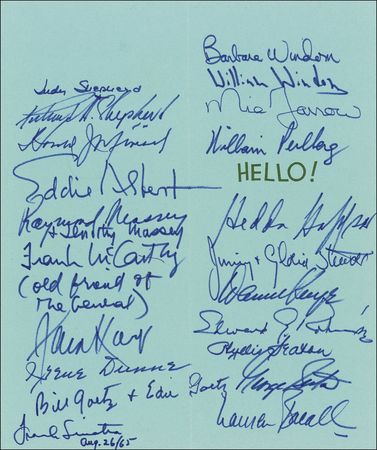 Judy Shepherd
Shepherd
Eddie Albert
Raymond Massey
+ Dorothy Massey
Frank McCarthy
(old friend of
the General)
Irene Dunne
Bill Goetz + Edie Goetz
Frank Sinatra
Aug. 26/65
Barbara Windom
William Windom
Mia Farrow
William Perlberg
HELLO!
Hedda Hopper
Jimmy + Gloria Stewart
Edward G. Robinson
Phyllis Seaton
George Seaton
Lauren Bacall